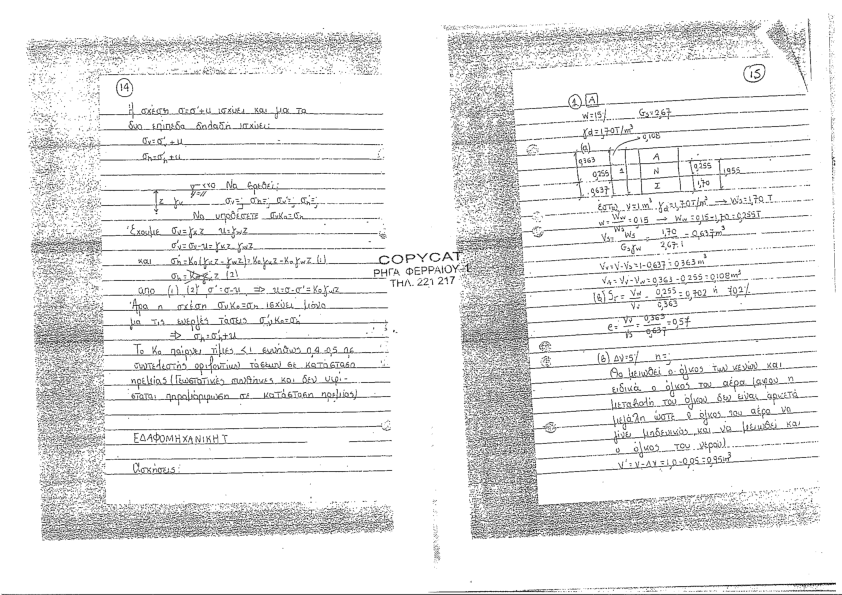 14
Η σχέση σ=σ'+u ισχύει και για τα
δυο επίπεδα δηλαδή ισχύει:
σv=σ'v+u
σh=σ'h+u
Να βρεθεί:
z γκ σv=; σh=; σv'=; σh'=;
Να υποθέσετε σvKo=σh
Έχουμε σv=γκz u=γwz
σ'v=σv-u=γκz-γwz
και σ'h=Ko(γκz-γwz)=Koγκz-Koγwz (1)
σh=Koγκz (2)
απο (1) (2) σ'=σ-u ⇒ u=σ-σ'=Koγwz
Άρα η σχέση σvKo=σh ισχύει μόνο
για τις ενεργές τάσεις σ'vKo=σ'h
⇒ σh=σ'h+u
Το Ko παίρνει τιμές <1 συνήθως 0,4-0,5 σε
συντελεστής οριζοντίων τάσεων σε κατάσταση
ηρεμίας (Γεωστατικές συνθήκες και δεν υφί-
σταται παραμόρφωση σε κατάσταση ηρεμίας)
ΕΔΑΦΟΜΗΧΑΝΙΚΗ Ι
Ασκήσεις:
COPYCAT
ΡΗΓΑ ΦΕΡΡΑΙΟΥ 1
ΤΗΛ. 221 217
15
1 A
W=15% Gs=2,67
γd=1,70T/m³
(α) 0,108
0,363 A
0,255 1 N 0,255 1,955
0,637 Σ 1,70
έστω V=1m³ γd=1,70T/m³ → Ws=1,70 T
w=Ww/Ws=0,15 → Ww=0,15·1,70=0,255T
Vs=Ws/Gsγw=1,70/2,67·1=0,637m³
Vv=V-Vs=1-0,637=0,363m³
VA=Vv-Vw=0,363-0,255=0,108m³
(β) Sr=Vw/Vv=0,255/0,363=0,702 ή 70,2%
e=Vv/Vs=0,363/0,637=0,57
(β) ΔV=5% n=;
Θα μειωθεί ο όγκος των κενών και
ειδικά ο όγκος του αέρα (αφου η
μεταβολή του όγκου δεν είναι αρκετά
μεγάλη ώστε ο όγκος του αέρα να
γίνει μηδενικός και να μειωθεί και
ο όγκος του νερού)
V'=V-ΔV=1,0-0,05=0,95m³